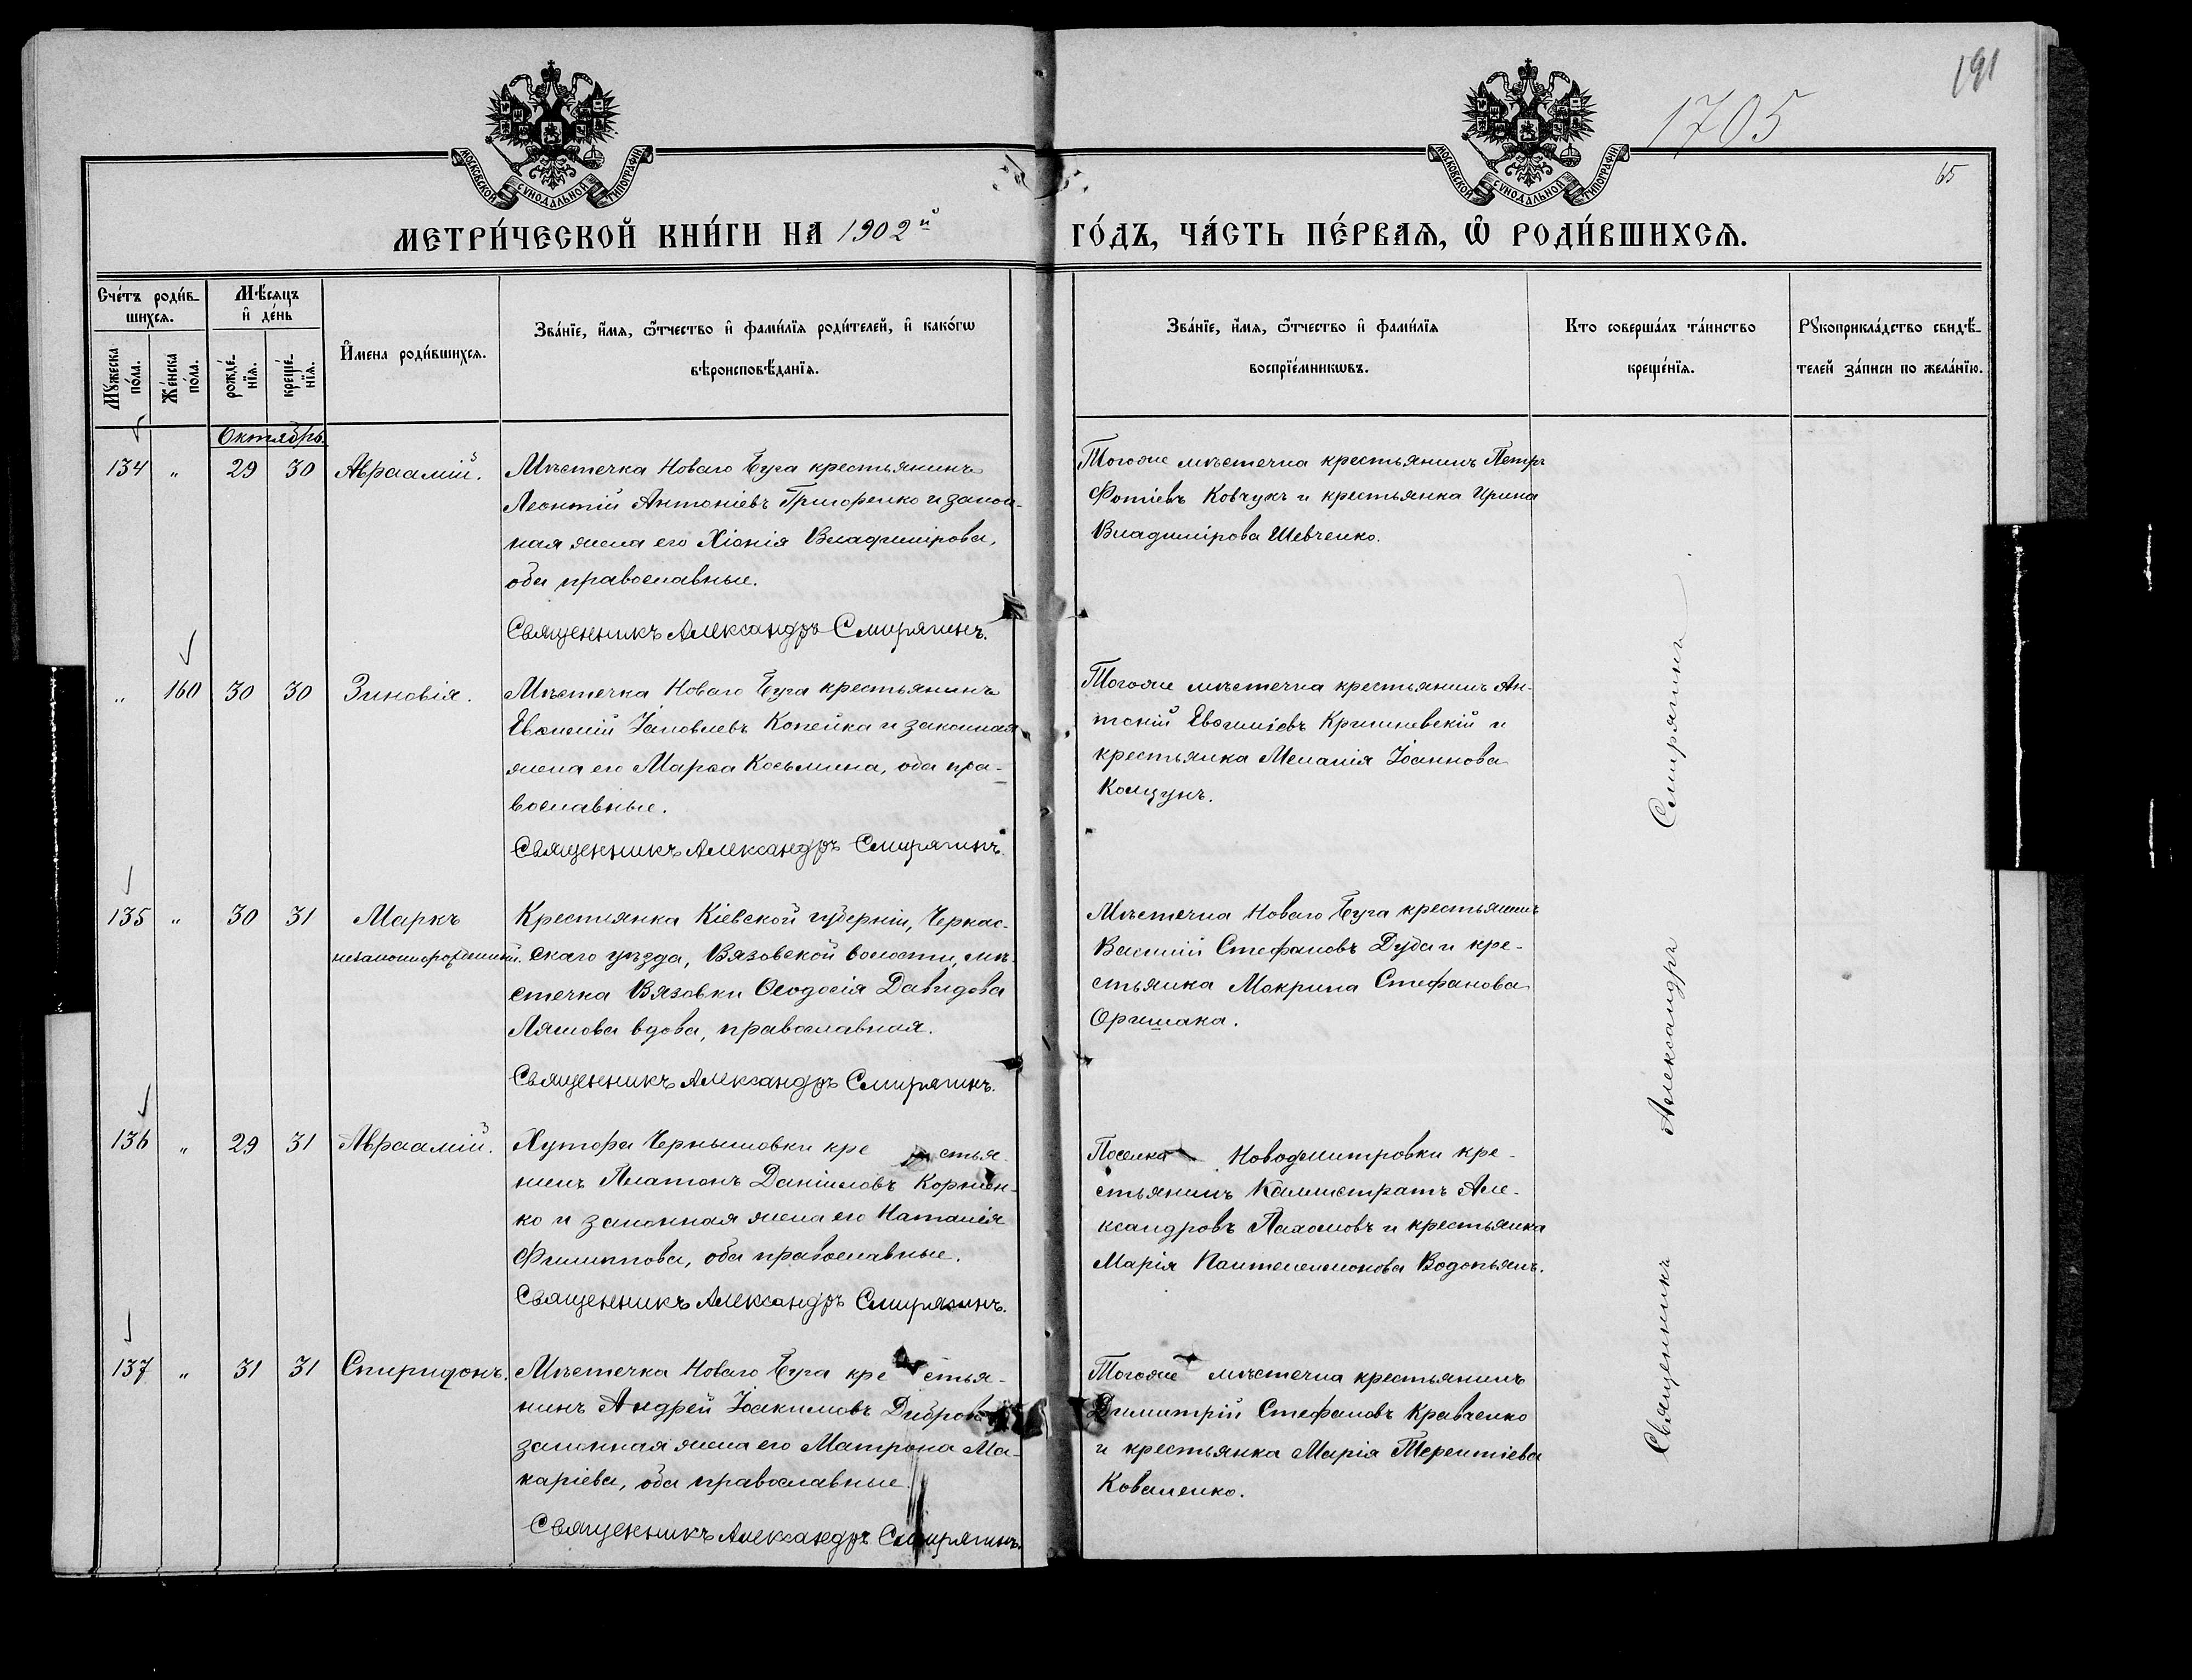 191
1705
65
МОСКОВСКОЙ СѴНОДАЛЬНОЙ ТИПОГРАФІИ
МОСКОВСКОЙ СѴНОДАЛЬНОЙ ТИПОГРАФІИ
МЕТРИ́ЧЕСКОЙ КНИ́ГИ НА 1902й
ГО́ДЪ, ЧА́СТЬ ПЕ́РВАѦ, Ѡ҆ РОДИ́ВШИХСѦ.
Сче́тъ роди́в-
шихсѧ.
Мꙋ́жеска по́ла.
Же́нска по́ла.
Мѣ́сѧцъ
и҆ де́нь
рожде́-
нїѧ.
креще́-
нїѧ.
И҆мена роди́вшихсѧ.
Зва́нїе, и҆́мѧ, ѻ҆́тчество и҆ фами́лїѧ роди́телей, и҆ како́гѡ
вѣроисповѣ́данїѧ.
Зва́нїе, и҆́мѧ, ѻ҆́тчество и҆ фами́лїѧ
воспрїе́мникѡвъ.
Кто соверша́лъ та́инство
креще́нїѧ.
Рꙋкоприкла́дство свидѣ́-
телей за́писи по жела́нїю.
Октябрь.
134 " 29 30 Авраамій.
Мѣстечка Новаго Буга крестьянинъ
Леонтій Антоніевъ Григоренко и закон-
ная жена его Хіонія Владимірова,
оба православные.
Священникъ Александръ Смирягинъ.
Тогоже мѣстечка крестьянинъ Петръ
Фотіевъ Ковчукъ и крестьянка Ирина
Владимірова Шевченко.
" 160 30 30 Зиновія.
Мѣстечка Новаго Буга крестьянинъ
Евѳимій Іаковлевъ Копейка и законная
жена его Марѳа Косьмина, оба пра-
вославные.
Священникъ Александръ Смирягинъ.
Тогоже мѣстечка крестьянинъ Ан-
тоній Евѳиміевъ Кришневскій и
крестьянка Меланія Іоаннова
135 " 30 31 Маркъ
незаконнорожденный.
Крестьянка Кіевской губерніи, Черкас-
скаго уѣзда, Вязовской волости, мѣ-
стечка Вязовки Ѳеодосія Давидова
Ляшова вдова, православная.
Священникъ Александръ Смирягинъ.
Мѣстечка Новаго Буга крестьянинъ
Василій Стефановъ Дуба и кре-
стьянка Мокрина Стефанова
136 " 29 31 Авраамій.
Хутора Чернышовки крестья-
нинъ Платонъ Даніиловъ Корніен-
ко и законная жена его Наталія
Филиппова, оба православные.
Священникъ Александръ Смирягинъ.
Поселка Новодмитровки кре-
стьянинъ Каллистратъ Але-
ксандровъ Пахомовъ и крестьянка
Марія Пантелеимонова Водопьянъ.
137 " 31 31 Спиридонъ.
Мѣстечка Новаго Буга крестья-
нинъ Андрей Іоакимовъ Диброва
законная жена его Матрона Ма-
каріева, оба православные.
Священникъ Александръ Смирягинъ.
Тогоже мѣстечка крестьянинъ
Димитрій Стефановъ Кравченко
и крестьянка Марія Терентіева
Коваленко.
Священникъ Александръ Смирягинъ.